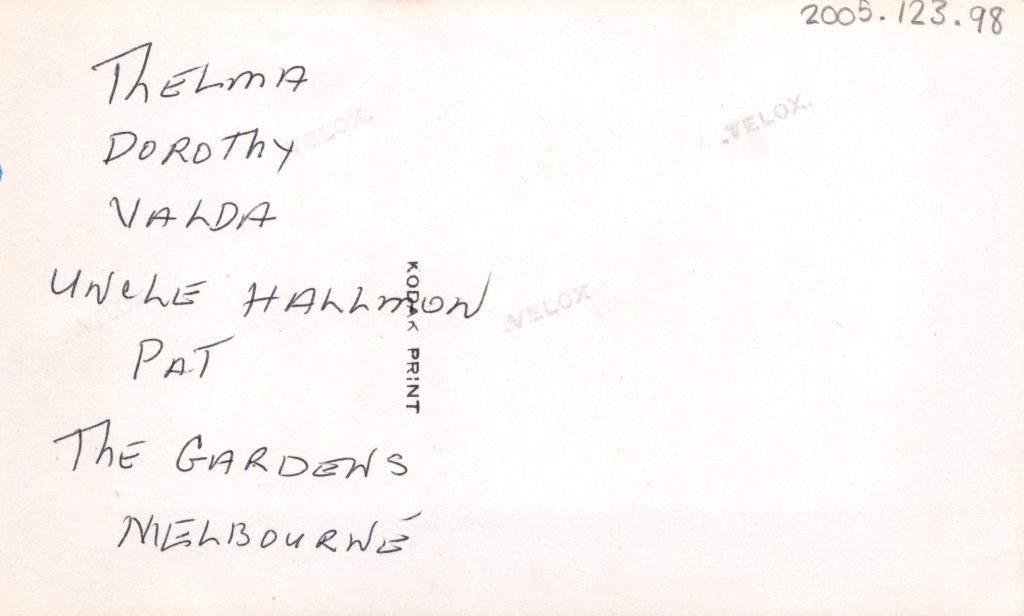 2005.123.98
THELMA
DOROTHY
VALDA
UNCLE HALLMON
PAT
THE GARDENS
MELBOURNE
KODAK PRINT
VELOX
VELOX
VELOX
VELOX